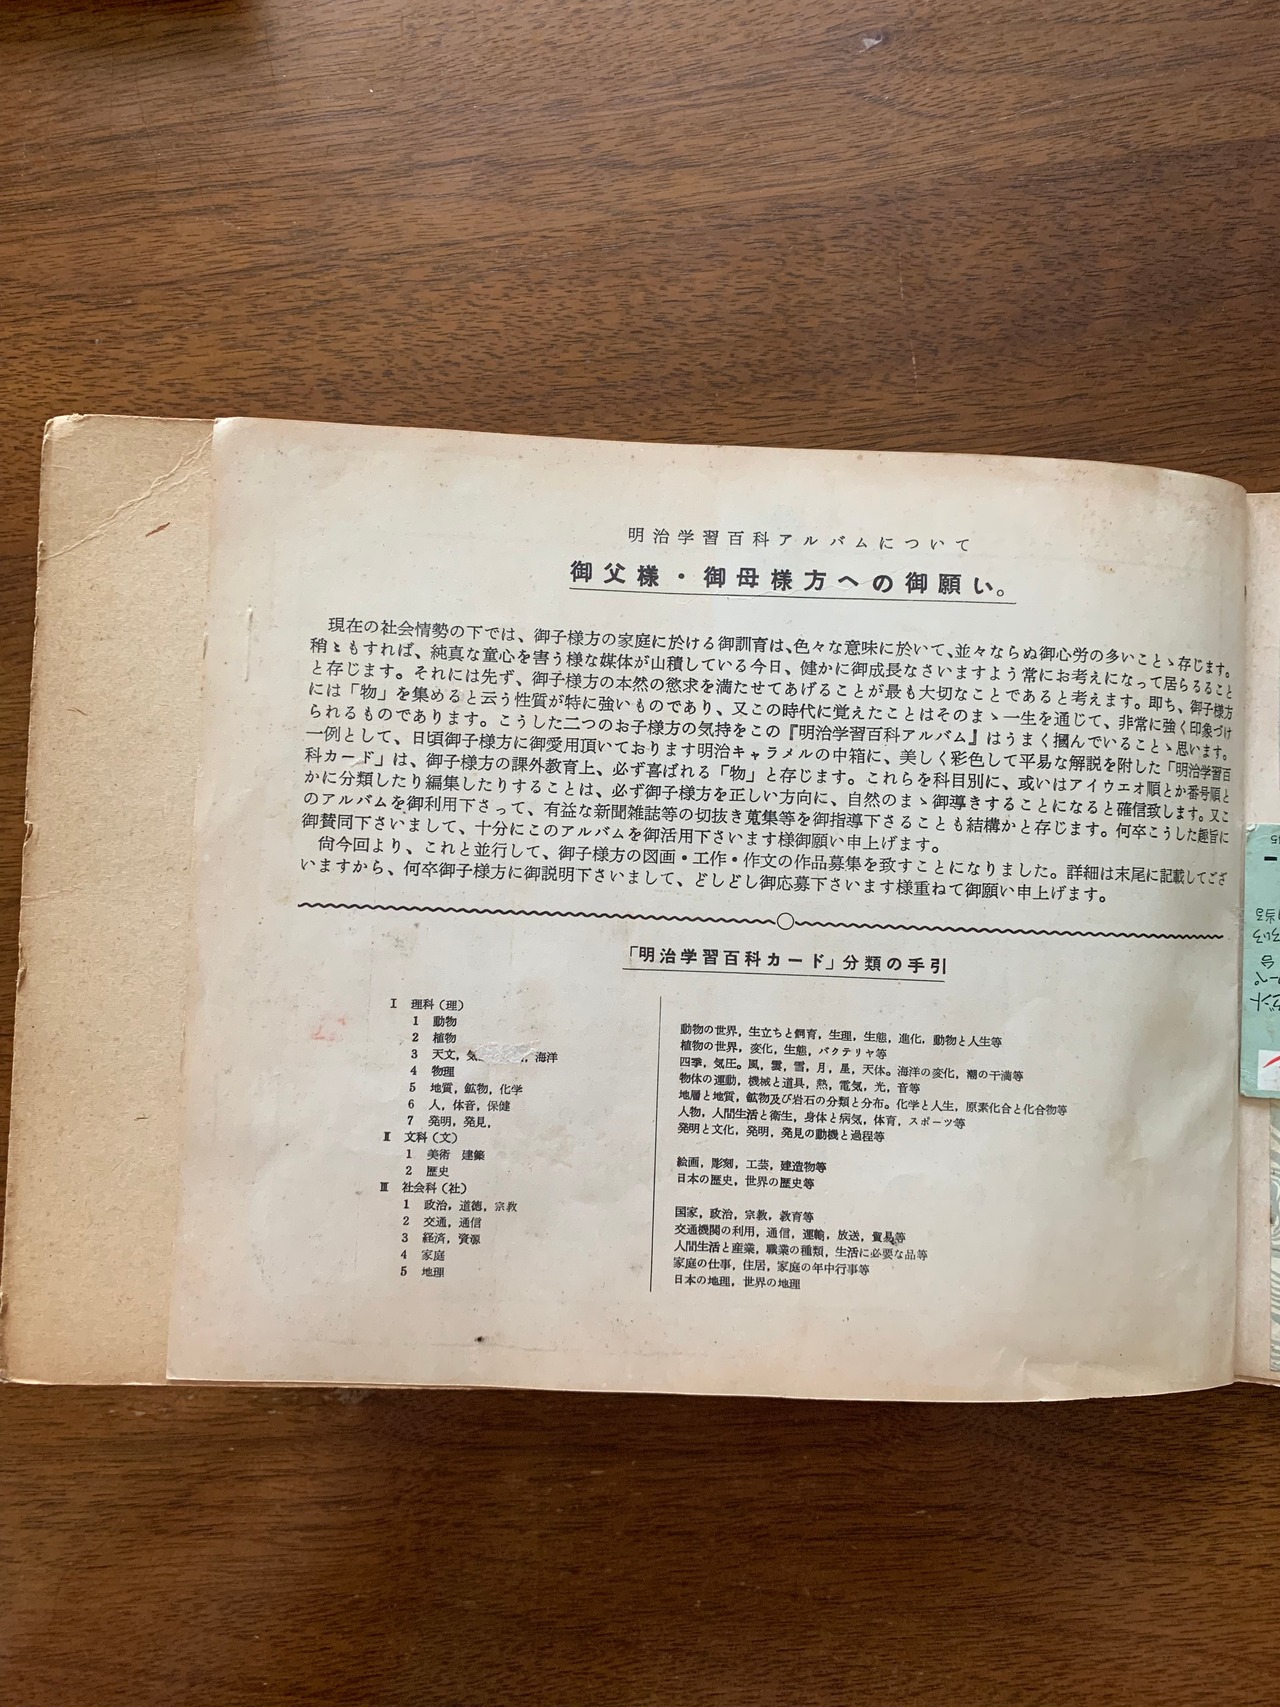 明治学習百科アルバムについて
御父様・御母様方への御願い。
現在の社会情勢の下では、御子様方の家庭に於ける御訓育は、色々な意味に於いて、並々ならぬ御心労の多いことゝ存じます。
稍〻もすれば、純真な童心を害う様な媒体が山積している今日、健かに御成長なさいますよう常にお考えになって居らるること
と存じます。それには先ず、御子様方の本然の慾求を満たせてあげることが最も大切なことであると考えます。即ち、御子様方
には「物」を集めると云う性質が特に強いものであり、又この時代に覚えたことはそのまゝ一生を通じて、非常に強く印象づけ
られるものであります。こうした二つのお子様方の気持をこの『明治学習百科アルバム』はうまく摑んでいることゝ思います。
一例として、日頃御子様方に御愛用頂いております明治キャラメルの中箱に、美しく彩色して平易な解説を附した「明治学習百
科カード」は、御子様方の課外教育上、必ず喜ばれる「物」と存じます。これらを科目別に、或いはアイウエオ順とか番号順と
かに分類したり編集したりすることは、必ず御子様方を正しい方向に、自然のまゝ御導きすることになると確信致します。又こ
のアルバムを御利用下さって、有益な新聞雑誌等の切抜き蒐集等を御指導下さることも結構かと存じます。何卒こうした趣旨に
御賛同下さいまして、十分にこのアルバムを御活用下さいます様御願い申上げます。
尙今回より、これと並行して、御子様方の図画・工作・作文の作品募集を致すことになりました。詳細は末尾に記載してござ
いますから、何卒御子様方に御説明下さいまして、どしどし御応募下さいます様重ねて御願い申上げます。
「明治学習百科カード」分類の手引
Ⅰ 理科（理）
1 動物 動物の世界，生立ちと飼育，生理，生態，進化，動物と人生等
2 植物 植物の世界，変化，生態，バクテリヤ等
3 天文，海洋 四季，気圧。風，雲，雪，月，星，天体。海洋の変化，潮の干満等
4 物理 物体の運動，機械と道具，熱，電気，光，音等
5 地質，鉱物，化学 地層と地質，鉱物及び岩石の分類と分布。化学と人生，原素化合と化合物等
6 人，体音，保健 人物，人間生活と衛生，身体と病気，体育，スポーツ等
7 発明，発見， 発明と文化，発明，発見の動機と過程等
Ⅱ 文科（文）
1 美術 建築 絵画，彫刻，工芸，建造物等
2 歴史 日本の歴史，世界の歴史等
Ⅲ 社会科（社）
1 政治，道徳，宗教 国家，政治，宗教，教育等
2 交通，通信 交通機関の利用，通信，運輸，放送，貿易等
3 経済，資源 人間生活と産業，職業の種類，生活に必要な品等
4 家庭 家庭の仕事，住居，家庭の年中行事等
5 地理 日本の地理，世界の地理